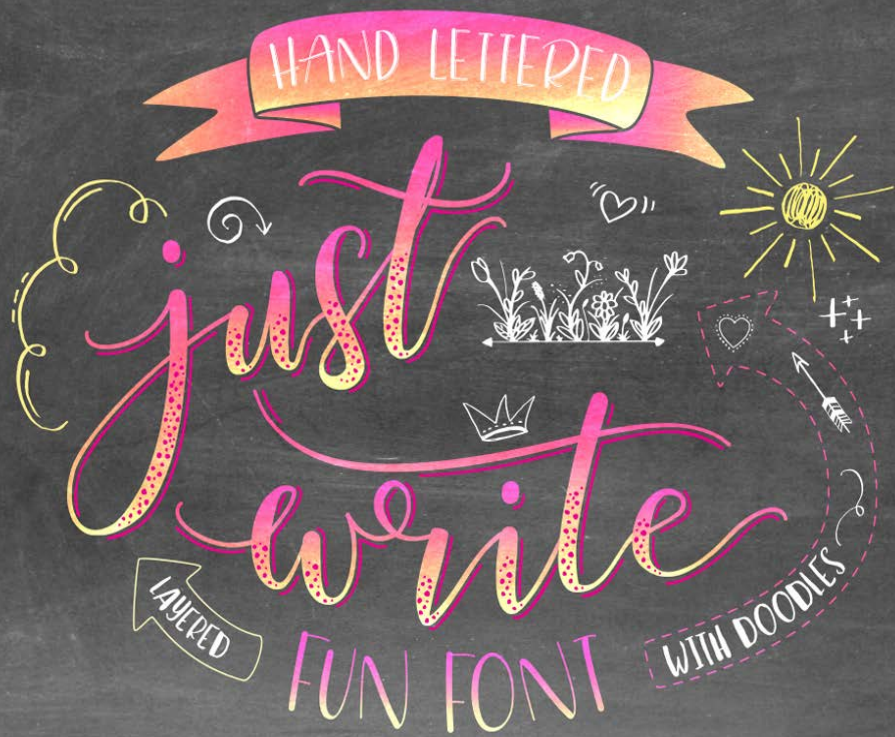 HAND LETTERED
just
write
LAYERED
FUN FONT
WITH DOODLES